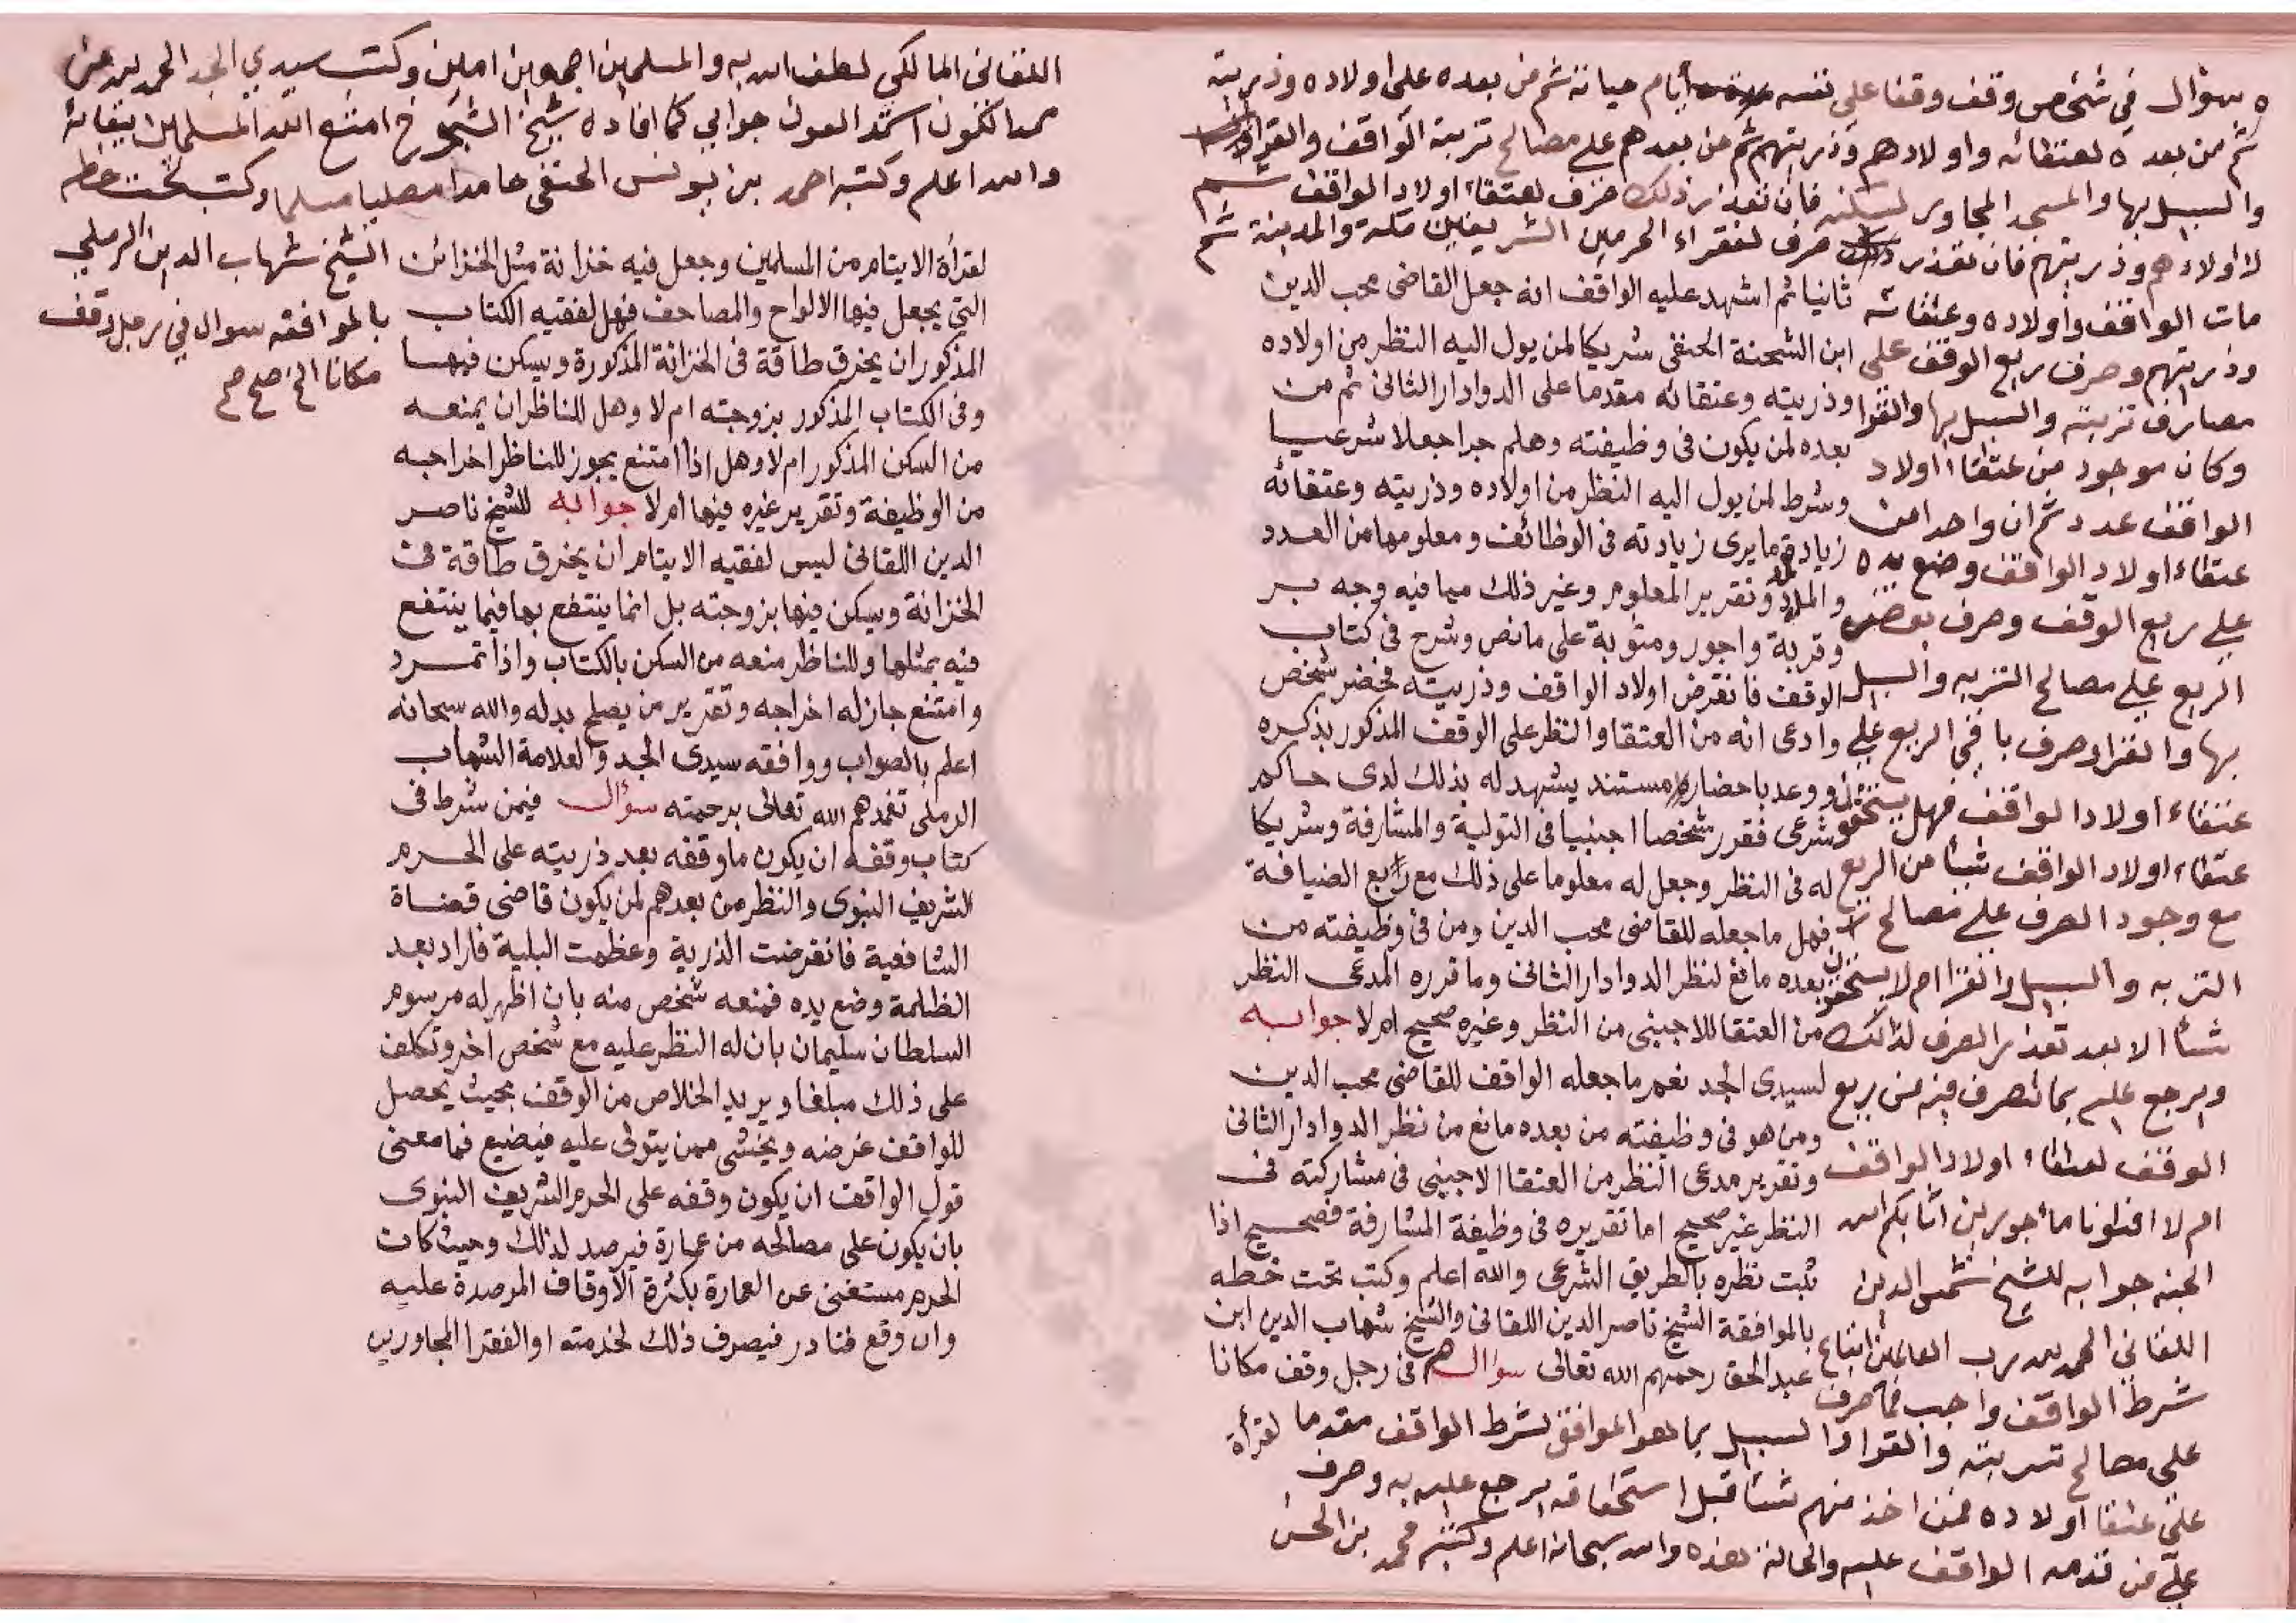 سؤال في شخص وقف وقفا على نفسه أيام حياته ثم من بعده على اولاده وذريته
ثم من بعده لعتقائه واولادهم وذريتهم ثم من بعدهم على مصالح تربة الواقف والقراء
والسبيل بها والمسجد المجاور لسكنه فان تعذر ذلك صرف لعتقاء اولاد الواقف ثم
لاولادهم وذريتهم فان تعذر ذلك صرف لفقراء الحرمين الشريفين مكة والمدينة ثم
مات الواقف وأولاده وعتقائه
وذريتهم وصرف ريع الوقف على
مصارف تربته والسبيل بها والقرا
وكان موجود من عتقاء اولاد
الواقف عدد ثم ان واحدا من
عتقاء اولاد الواقف وضع يده
على ريع الوقف وصرف بعض
الريع على مصالح التربه والسبيل
بها والقراء وصرف باقي الريع على
عتقاء اولاد الواقف فهل يستحق
عتقاء اولاد الواقف شيئا من الريع
مع وجود الصرف على مصالح
التربه والسبيل والقرا ام لا يستحقون
شيئا الا بعد تعذر الصرف لذلك
ويرجع عليه بما تصرف فيه من ريع
الوقف لعتقاء اولاد الواقف
ام لا افتونا مأجورين أثابكم الله
الجنه جوابه للشيخ شمس الدين
اللقاني الحمد لله رب العالمين اتباع
شرط الواقف واجب فما صرف
على مصالح تربته والقراء والسبيل بما هو الموافق لشرط الواقف مقدما
على عتقا اولاده فمن اخذ منهم شيئا قبل استحقاقه يرجع عليه به وصرف
على من قدمه الواقف عليه والحالة هذه والله سبحانه اعلم وكتبه محمد بن الحسن
ثانيا ثم اشهد عليه الواقف انه جعل القاضى محب الدين
ابن الشحنة الحنفى شريكا لمن يول اليه النظر من اولاده
وذريته وعتقائه مقدما على الدوادار الثانى ثم من
بعده لمن يكون فى وظيفته وهلم جرا جعلا شرعيا
وشرط لمن يول اليه النظر من اولاده وذريته وعتقائه
زيادة ما يرى زيادته فى الوظائف ومعلومها من العدد
والمدد وتقرير المعلوم وغير ذلك مما فيه وجه بر
وقربة واجور ومثوبة على ما نص وشرح فى كتاب
الوقف فانقرض اولاد الواقف وذريته فحضر شخص
وادعى انه من العتقا والنظر على الوقف المذكور بذكره
ووعد باحضار مستند يشهد له بذلك لدى حاكم
شرعى فقرر شخصا اجنبيا فى التولية والمشارفة وشريكا
له فى النظر وجعل له معلوما على ذلك مع رابع الضيافة
فهل ما جعله للقاضى محب الدين ومن فى وظيفته من
بعده مانع لنظر الدوادار الثانى وما قرره المدعى النظر
من العتقا للاجنبى من النظر وغيره صحيح ام لا جوابه
لسيدى الجد نعم ما جعله الواقف للقاضى محب الدين
ومن هو فى وظيفته من بعده مانع من نظر الدوادار الثانى
وتقرير مدعى النظر من العتقا الاجنبى فى مشاركته فى
النظر غير صحيح اما تقريره فى وظيفة المشارفة فصحيح اذا
ثبت نظره بالطريق الشرعى والله اعلم وكتب تحت خطه
بالموافقة الشيخ ناصر الدين اللقانى والشيخ شهاب الدين ابن
عبد الحق رحمهم الله تعالى سؤال فى رجل وقف مكانا
لقرأة
اللقانى المالكى لطف الله به والمسلمين اجمعين امين وكتب سيدي الجد الحمد لله
ممد الكون استمد العون جوابي كما افاده شيخ الشيوخ امتع الله المسلمين ببقائه
والله اعلم وكتبه احمد بن يونس الحنفى حامدا مصليا مسلما وكتب تحت خطه
الشيخ شهاب الدين الرملي
بالموافقه سوال في رجل وقف
مكانا الخ صح صح
لقرأة الايتام من المسلمين وجعل فيه خزانة مثل الخزائن
التى يجعل فيها الالواح والمصاحف فهل لفقيه الكتاب
المذكور ان يخرق طاقة فى الخزانة المذكورة ويسكن فيها
وفى الكتاب المذكور بزوجته ام لا وهل للناظر ان يمنعه
من السكن المذكور ام لا وهل اذا امتنع يجوز للناظر اخراجه
من الوظيفة وتقرير غيره فيها ام لا جوابه للشيخ ناصر
الدين اللقانى ليس لفقيه الايتام ان يخرق طاقة فى
الخزانة ويسكن فيها بزوجته بل انما ينتفع بها فيما ينتفع
فيه بمثلها وللناظر منعه من السكن بالكتاب واذا تمرد
وامتنع جاز له اخراجه وتقرير من يصلح بدله والله سبحانه
اعلم بالصواب ووافقه سيدى الجد والعلامة الشهاب
الرملى تغمدهم الله تعالى برحمته سؤال فيمن شرط فى
كتاب وقفه ان يكون ما وقفه بعد ذريته على الحرم
الشريف النبوى والنظر من بعدهم لمن يكون قاضى قضاة
الشافعية فانقرضت الذرية وعظمت البلية فاراد بعد
الظلمة وضع يده فمنعه شخص منه بان اظهر له مرسوم
السلطان سليمان بان له النظر عليه مع شخص اخر وتكلف
على ذلك مبلغا ويريد الخلاص من الوقف بحيث يحصل
للواقف غرضه ويخشى ممن يتولى عليه فيضيع فما معنى
قول الواقف ان يكون وقفه على الحرم الشريف النبوى
بان يكون على مصالحه من عمارة فيرصد لذلك وحيث كان
الحرم مستغنى عن العمارة بكثرة الاوقاف المرصدة عليه
وان وقع فنادر فيصرف ذلك لخدمته او الفقرا المجاورين